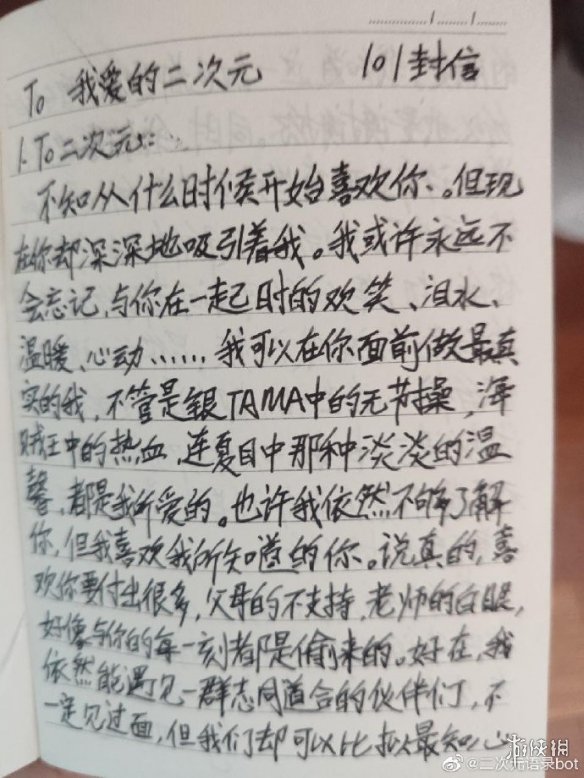 To 我爱的二次元 101封信
1.To二次元:…
不知从什么时候开始喜欢你、。但现
在你却深深地吸引着我。我或许永远不
会忘记,与你在一起时的欢笑、泪水、
温暖、心动……我可以在你面前做最真
实的我,不管是银TAMA中的无节操,海
贼王中的热血,连夏目中那种淡淡的温
馨,都是我所爱的。也许我依然不够了解
你,但我喜欢我所知道的你。说真的,喜
欢你要付出很多,父母的不支持,老师的白眼,
好像与你的每一刻都是偷来的。好在,我
依然能遇见一群志同道合的伙伴们,不
一定见过面,但我们却可以比拟最知心
游侠网
@二次元语录bot